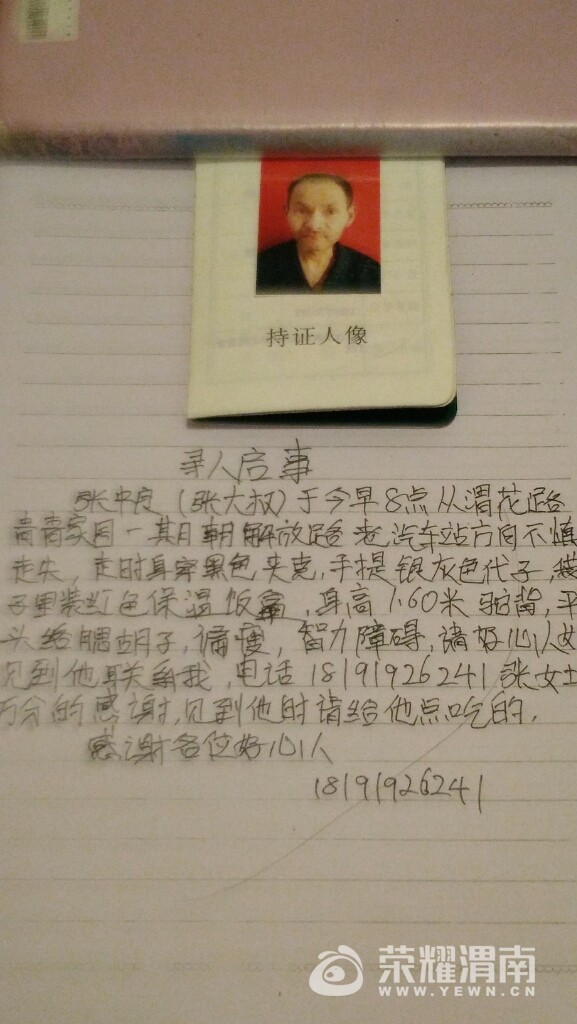 持证人像
寻人启事
张中良（张大叔）于今早8点从渭花路
青青家园一期朝解放路老汽车站方向不慎
走失，走时身穿黑色夹克，手提银灰色代子，袋
子里装红色保温饭盒，身高1.60米驼背，平
头络腮胡子，偏瘦，智力障碍，请好心人如
见到他联系我，电话18191926241张女士
万分的感谢，见到他时请给他点吃的，
感谢各位好心人
18191926241
荣耀渭南
WWW.YEWN.CN